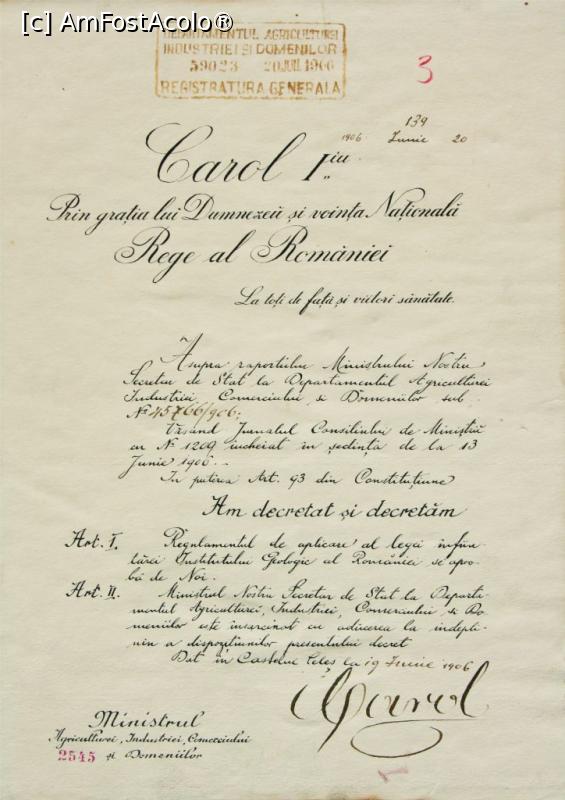 [c] AmFostAcolo®
DEPARTAMENTUL AGRICULTUREI
INDUSTRIEI ȘI DOMENIILOR
59023 20 JUN. 1906
REGISTRATURA GENERALA
3
139
1906 Iunie 20
Carol I.iu
Prin grația lui Dumnezeŭ și voința Națională
Rege al României
La toți de față și viitori sănătate.
Asupra raportului Ministrului Nostru
Secretar de Stat la Departamentul Agriculturei
Industriei, Comerciului și Domeniilor sub
No 45766/906;
Văzând Jurnalul Consiliului de Miniștri
cu No 1209 încheiat în ședința de la 13
Junie 1906.-
In puterea Art. 93 din Constituțiune
Am decretat și decretăm
Art. I. Regulamentul de aplicare al legei înfiin-
țărei Institutului Geologic al României se apro-
bă de Noi.
Art. II. Ministrul Nostru Secretar de Stat la Departa-
mentul Agriculturei, Industriei, Comerciului și Do-
meniilor este însărcinat cu aducerea la îndepli-
nire a dispozițiunilor presentului decret
Dat în Castelul Peleș la 19 Iunie 1906
Carol
Ministrul
Agriculturei, Industriei, Comerciului
2545 și Domeniilor